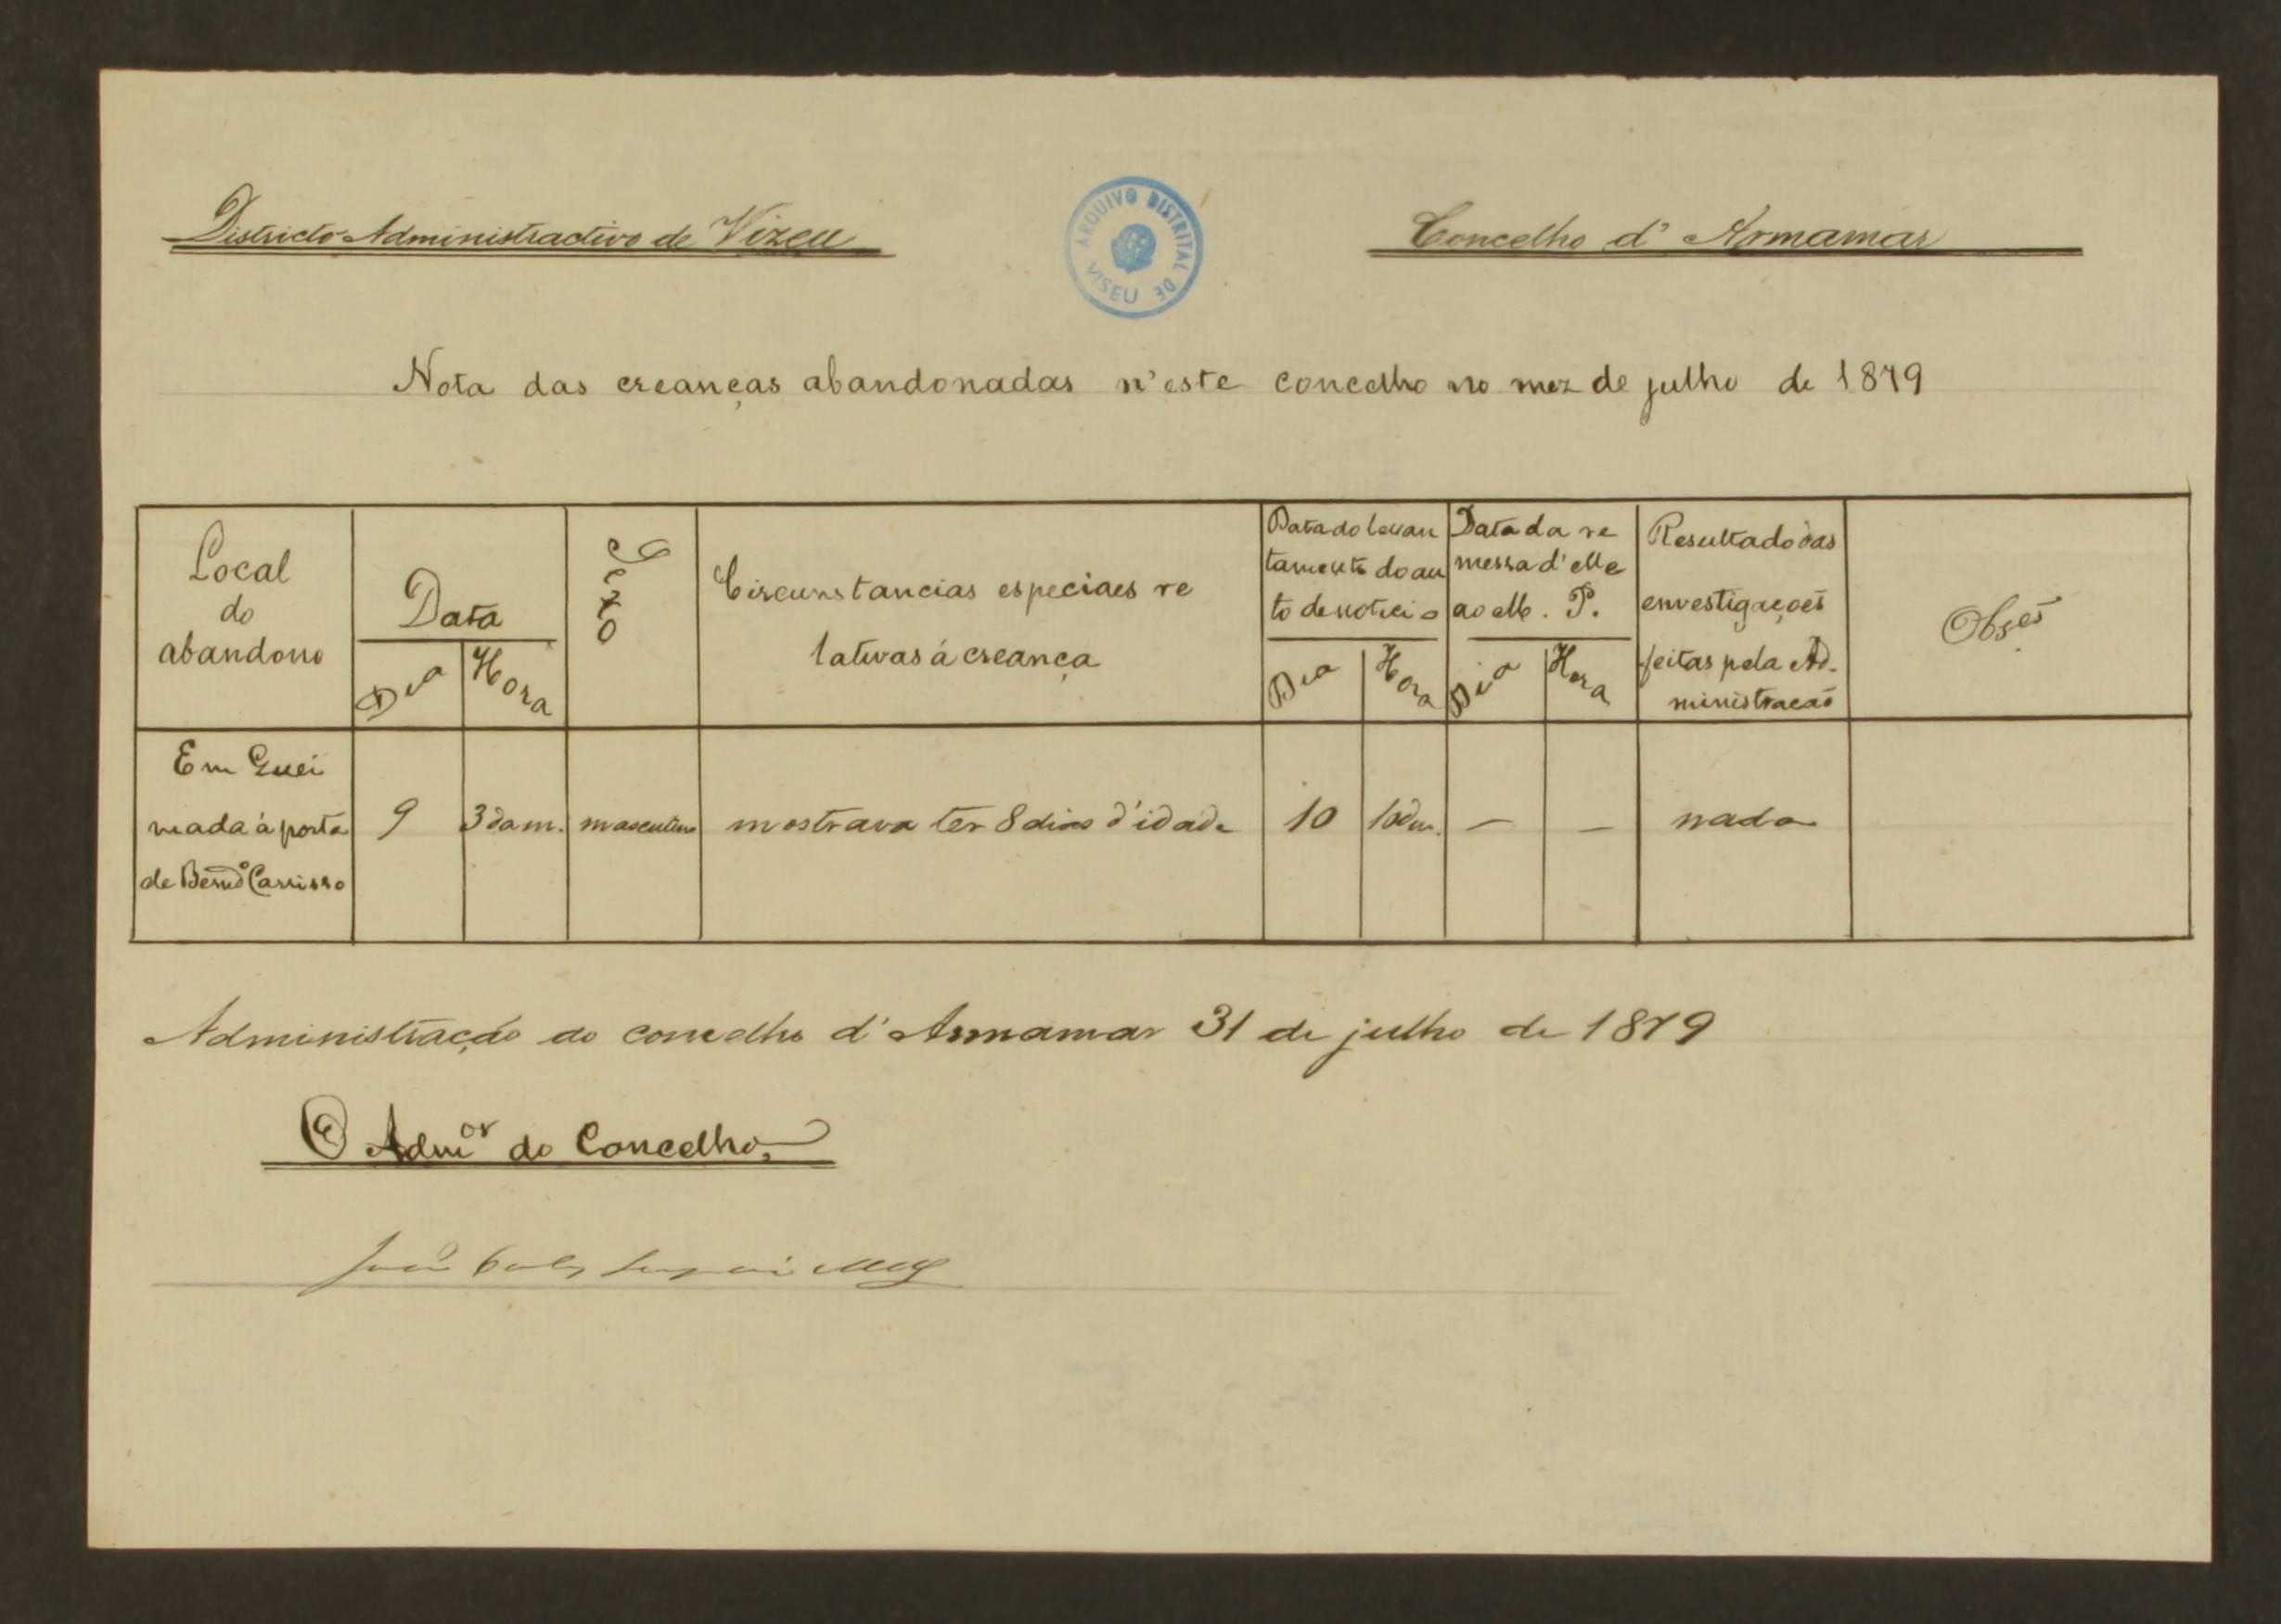 Districto Administractivo de Vizeu
ARQUIVO DISTRITAL DE VISEU
Concelho d' Armamar
Nota das creanças abandonadas n'este concelho no mez de julho de 1879
Local
do
abandono
Data
Dia
Hora
Sexo
Circunstancias especiaes re
lativas á creança
Data do levan
tamento do au
to de noticia
Dia
Hora
Data da re
messa d'elle
ao M. P.
Dia
Hora
Resultado das
envestigações
feitas pela Ad-
ministração
Obs.es
Em Quei
mada á porta
de Bern.do Carrisso
9
3 da m.
masculino
mostrava ter 8 dias d'idade
10
10 da m.
—
—
nada
Administração do concelho d'Armamar 31 de julho de 1879
O Adm.or do Concelho,
João